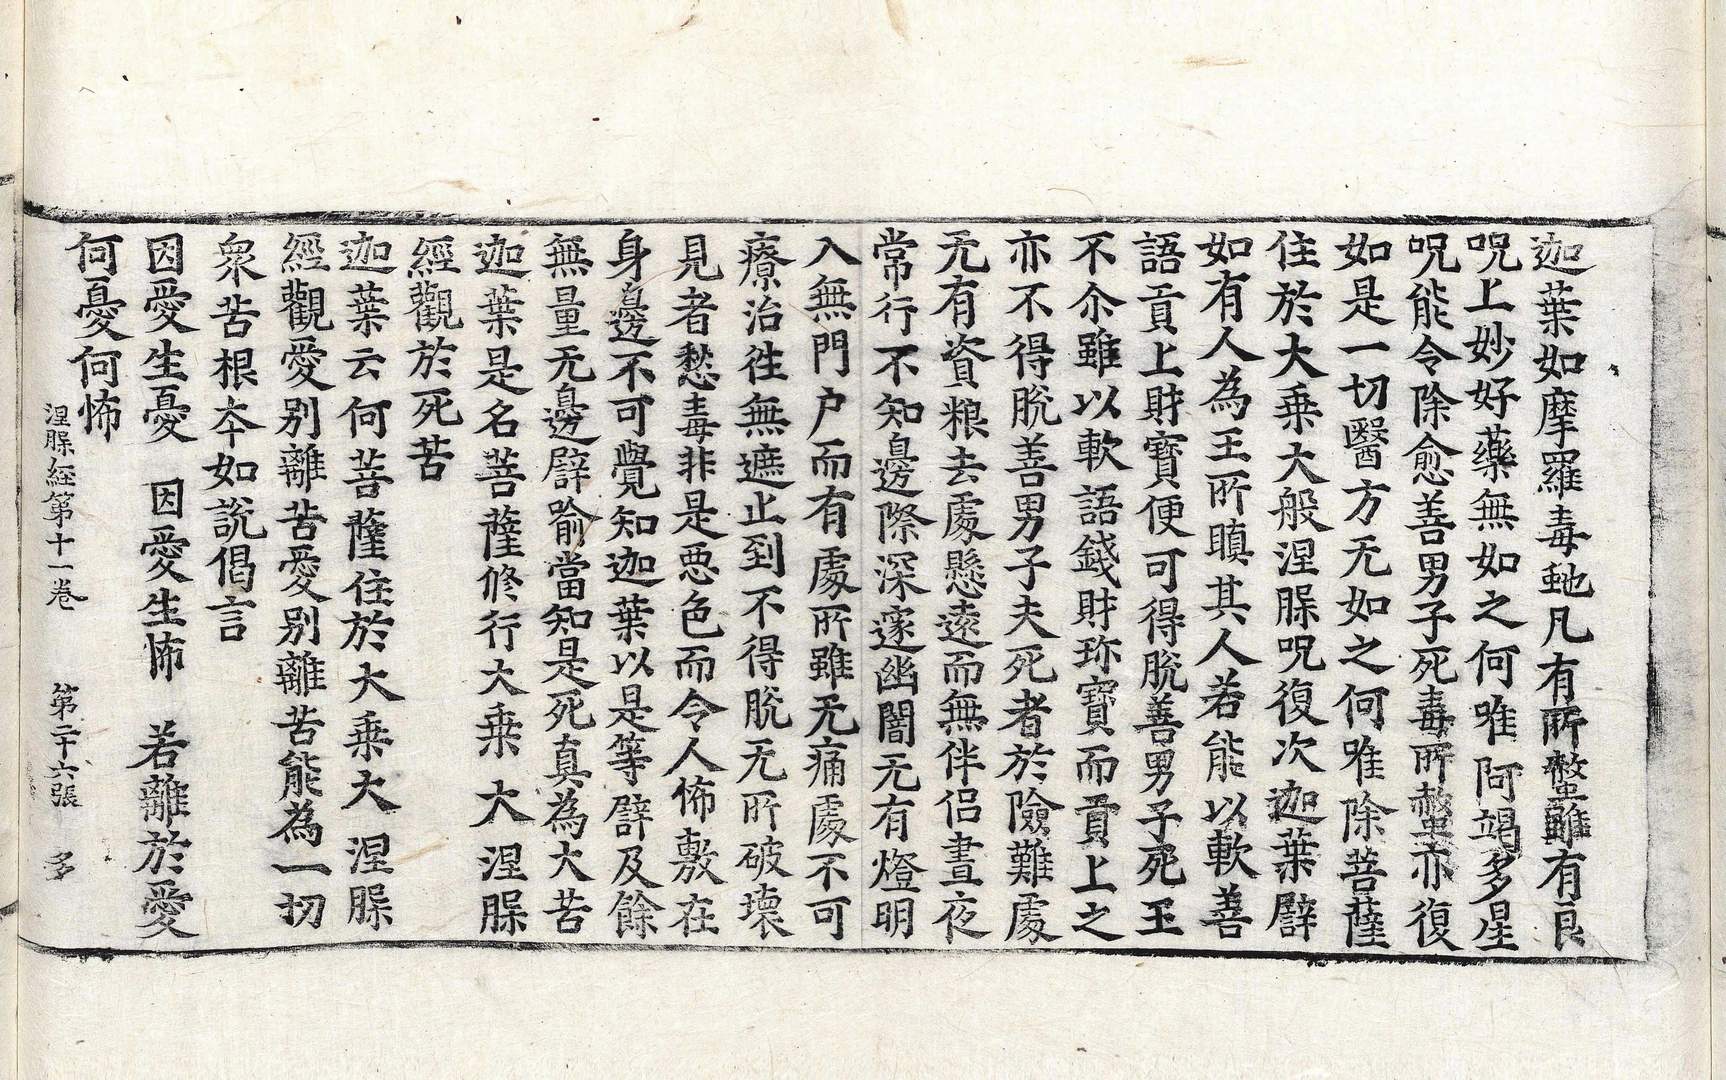 迦葉如摩羅毒虵凡有所螫雖有良
呪上妙好藥無如之何唯阿竭多星
呪能令除愈善男子死毒所螫亦復
如是一切醫方无如之何唯除菩薩
住於大乗大般涅槃呪復次迦葉譬
如有人為王所瞋其人若能以軟善
語貢上財寶便可得脫善男子死王
不尒雖以軟語錢財珎寶而貢上之
亦不得脫善男子夫死者於險難處
无有資粮去處懸遠而無伴侣晝夜
常行不知邊際深邃幽闇无有燈明
入無門户而有處所雖无痛處不可
療治徃無遮止到不得脫无所破壞
見者愁毒非是惡色而令人怖敷在
身邊不可覺知迦葉以是等譬及餘
無量无邊譬喻當知是死真為大苦
迦葉是名菩薩修行大乗大涅槃
經觀於死苦
迦葉云何菩薩住於大乗大涅槃
經觀愛别離苦愛别離苦能為一切
衆苦根夲如說偈言
因愛生憂 因愛生怖 若離於愛
何憂何怖
涅槃經第十一卷 第二十六張 多